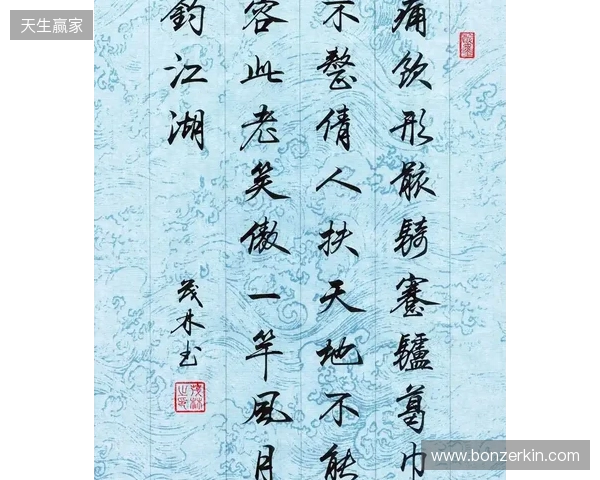 天生赢家
痛飲形骸騎蹇驢葛巾
不整倩人扶天地不能
容此老笑傲一竿風月
釣江湖
茂林书
www.bonzerkin.com